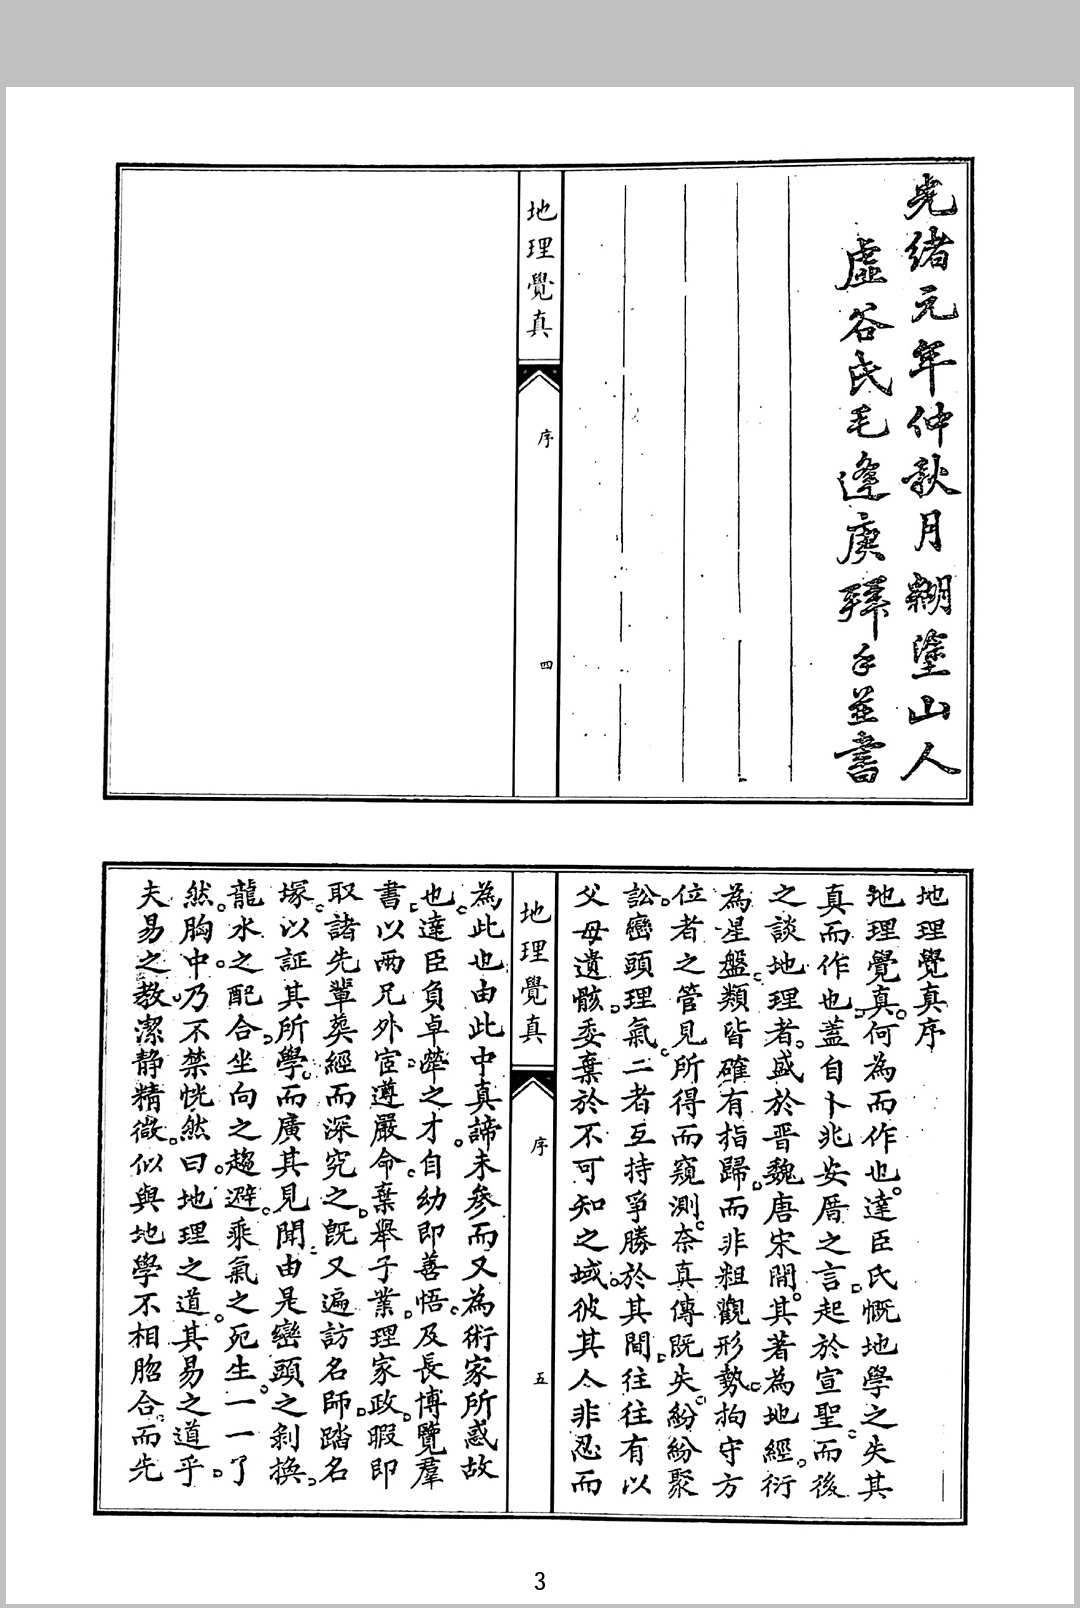 光緒元年仲秋月糊塗山人
虛谷氏毛逢庚拜手並書
地理覺真
序
四
地理覺真序
地理覺真何為而作也達臣氏慨地學之失其
真而作也蓋自卜兆安厝之言起於宣聖而後
之談地理者盛於晋魏唐宋間其著為地經衍
為星盤類皆確有指歸而非粗觀形勢拘守方
位者之管見所得而窺測奈真傳既失紛紛聚
訟巒頭理氣二者互持爭勝於其間往往有以
父母遺骸委棄於不可知之域彼其人非忍而
地理覺真
序
五
為此也由此中真諦未參而又為術家所惑故
也達臣負卓犖之才自幼即善悟及長博覽羣
書以兩兄外宦遵嚴命棄舉子業理家政暇即
取諸先輩葬經而深究之既又遍訪名師踏名
塚以証其所學而廣其見聞由是巒頭之剝換
龍水之配合坐向之趨避乘氣之死生一一了
然胸中乃不禁恍然曰地理之道其易之道乎
夫易之教潔静精微似與地學不相脗合而先
3